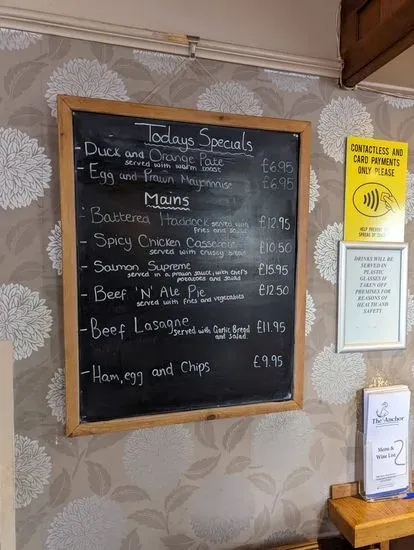 Todays Specials
- Duck and Orange Pate £6.95
served with warm toast
- Egg and Prawn Mayonnaise £6.95
Mains
- Battered Haddock served with £12.95
fries and salad
- Spicy Chicken Casserole £10.50
served with crusty bread
- Salmon Supreme £15.95
served in a prawn sauce, with chef's
potatoes and salad
- Beef 'N' Ale Pie £12.50
served with fries and vegetables
- Beef Lasagne served with Garlic Bread £11.95
and salad
- Ham, egg and Chips £9.95
CONTACTLESS AND
CARD PAYMENTS
ONLY PLEASE
HELP PREVENT THE
SPREAD OF
DRINKS WILL BE
SERVED IN
PLASTIC
GLASSES IF
TAKEN OFF
PREMISES FOR
REASONS OF
HEALTH AND
SAFETY
The Anchor
Menu &
Wine List
2